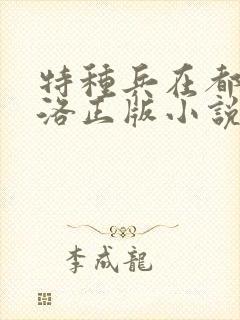 特種兵在都
洛正版小說
李成龍